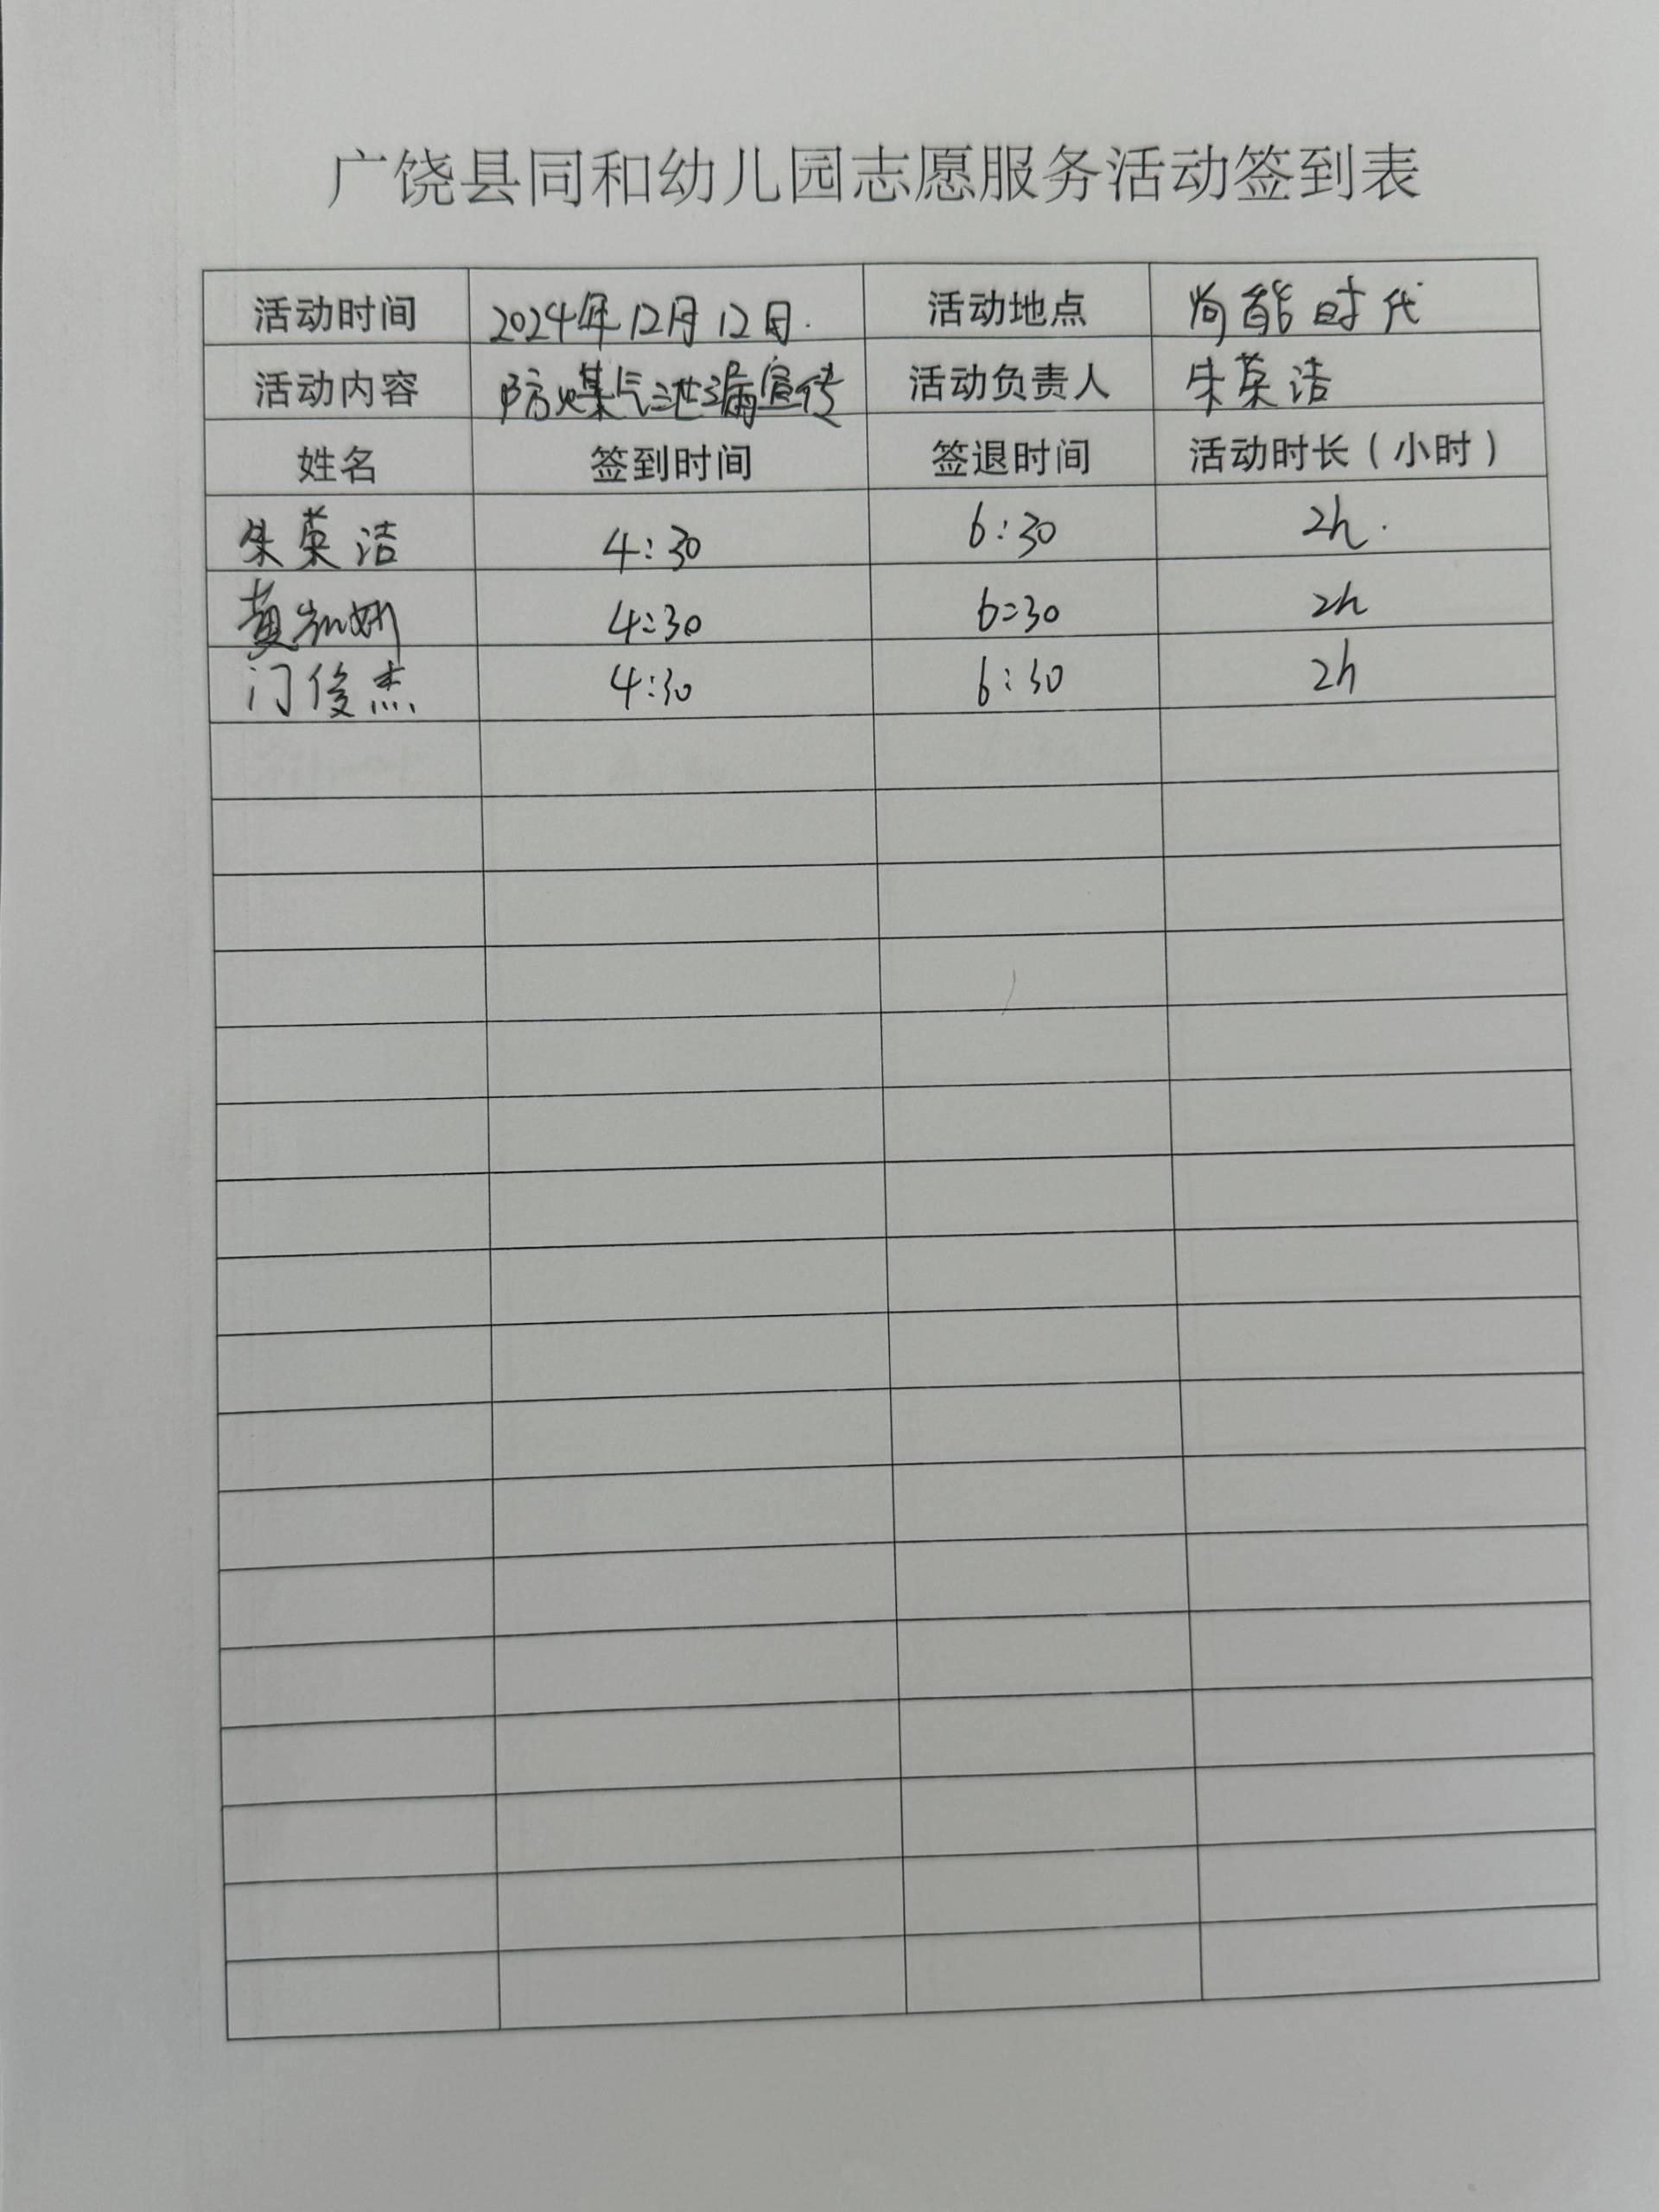 广饶县同和幼儿园志愿服务活动签到表
活动时间 2024年12月12日. 活动地点 尚能时代
活动内容 防煤气泄漏宣传 活动负责人 朱英洁
姓名 签到时间 签退时间 活动时长（小时）
朱英洁 4:30 6:30 2h.
黄 4:30 6:30 2h
门俊杰 4:30 6:30 2h